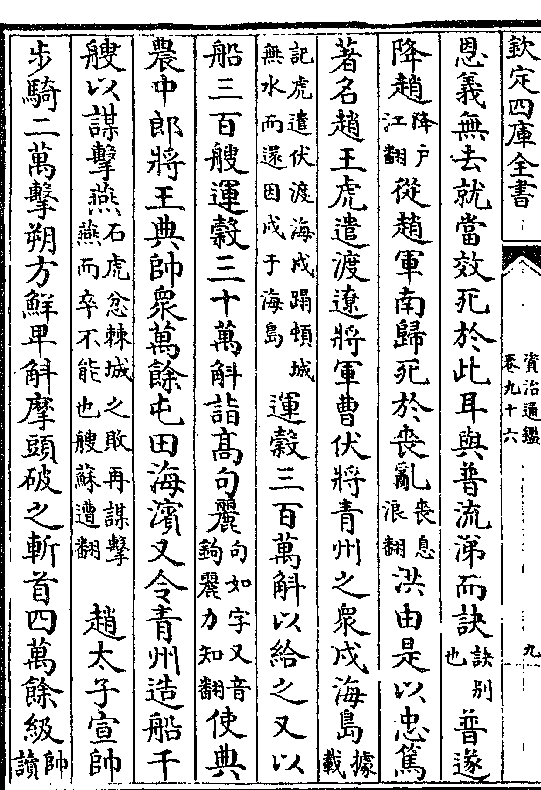 欽定四庫全書
資治通鑑
卷九十六
九
恩義無去就當效死於此耳與普流涕而訣訣别也 普遂
降趙降户江翻從趙軍南歸死於喪亂喪息浪翻洪由是以忠篤
著名趙王虎遣渡遼將軍曹伏將青州之衆戍海島據載
記虎遣伏渡海戍蹋頓城無水而還因戍于海島 運穀三百萬斛以給之又以
船三百艘運穀三十萬斛詣高句麗句如字又音鉤麗力知翻使典
農中郎將王典帥衆萬餘屯田海濱又令青州造船千
艘以謀擊燕石虎忿棘城之敗再謀擊燕而卒不能也艘蘇遭翻 趙太子宣帥
步騎二萬擊朔方鮮卑斛摩頭破之斬首四萬餘級帥讀